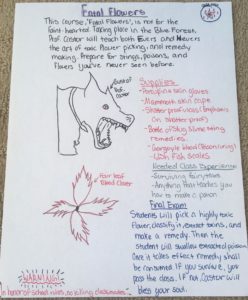 Fatal Flowers
This course, 'Fatal Flowers', is not for the
faint hearted. Taking place in the Blue Forest,
Prof. Castor will teach both Evers and Nevers
the art of toxic flower picking, and remedy
making. Prepare for stings, poisons, and
flowers you've never seen before.
Castor
Supplies
- Porcupine skin gloves
- Mammoth skin cape
- Shatter proof vials (Emphasis
on shatter proof)
- Bottle of Slug slime sting
remedies.
- Gargoyle blood (Poison curing)
- Wish Fish scales
Needed Class Experience
- Surviving fairytales
- Anything that teaches you
how to make a potion
Final Exam
Students will pick a highly toxic
flower, classify it, extract toxins, and
make a remedy. Then the
student will swallow extracted poison.
Once it takes effect remedy shall
be consumed. If you survive, you
pass the class. If not, Castor will
bless your soul.
Four leaf
Blood Clover
WARNING!
In honor of school rules, no killing classmates.